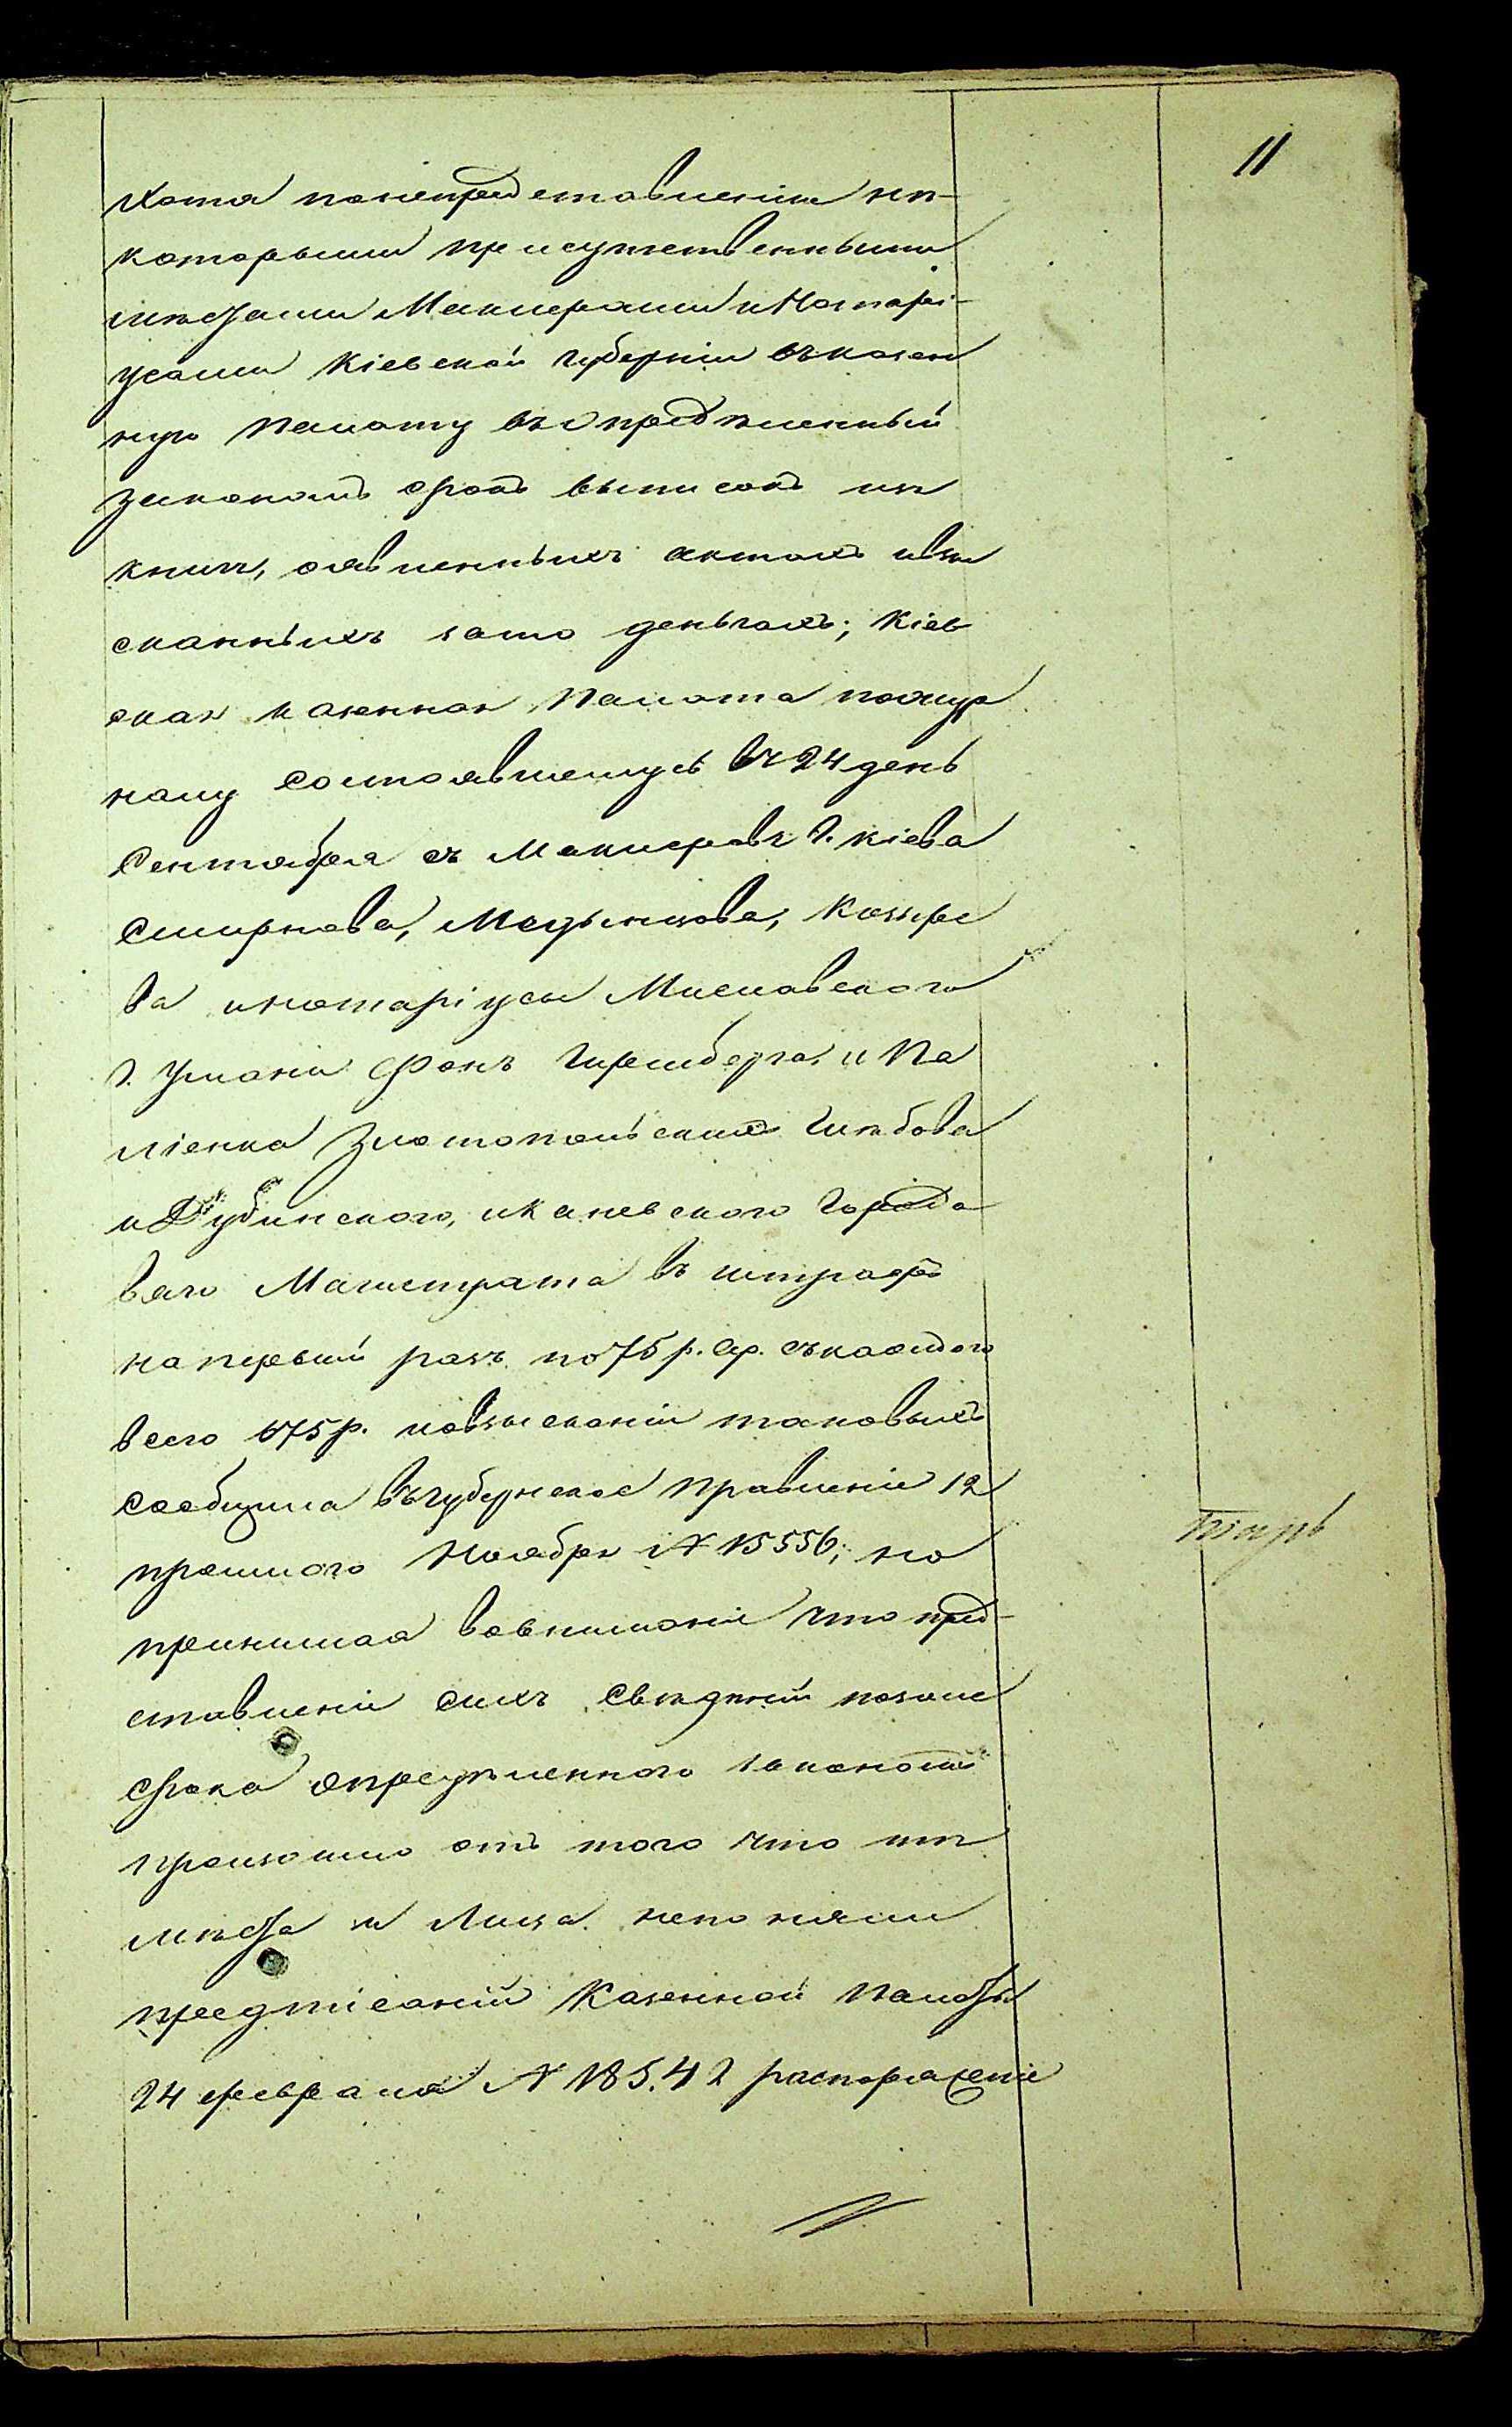 11
Хотя понепредставленію нѣ-
которыми присутственными
мѣстами Маклерами и Нотарі-
усами Кіевской губерніи въ казен
ную Палату въ опредѣленный
закономъ срокъ выписокъ изъ
книгъ, о явленныхъ актахъ и взы
сканныхъ за то деньгахъ; Кіев
ская казенная Палата по жур
налу состоявшемуся въ 24 день
Сентября съ Маклеровъ г. Кіева
Смирнова, Медынцова,
ва и нотаріуса Мисловскаго
г. Умани Фонъ и Па
ліенка Златопольскихъ Глѣбова
и Дубинскаго, и Каневскаго Городо
ваго Магистрата въ штрафъ
на первый разъ по 75 р. сер. съ каждаго
всего 675 р. и о взысканіи таковыхъ
сообщила въ губернское правленіе 12
прошлаго Ноября № 15556; но
принимая во вниманіе что пред-
ставленіе сихъ свѣдѣній позже
срока опредѣленнаго закономъ
произошло отъ того что тѣ
мѣста и Лица не поняли
предписаній Казенной Палаты
24 февраля № распоряженіе